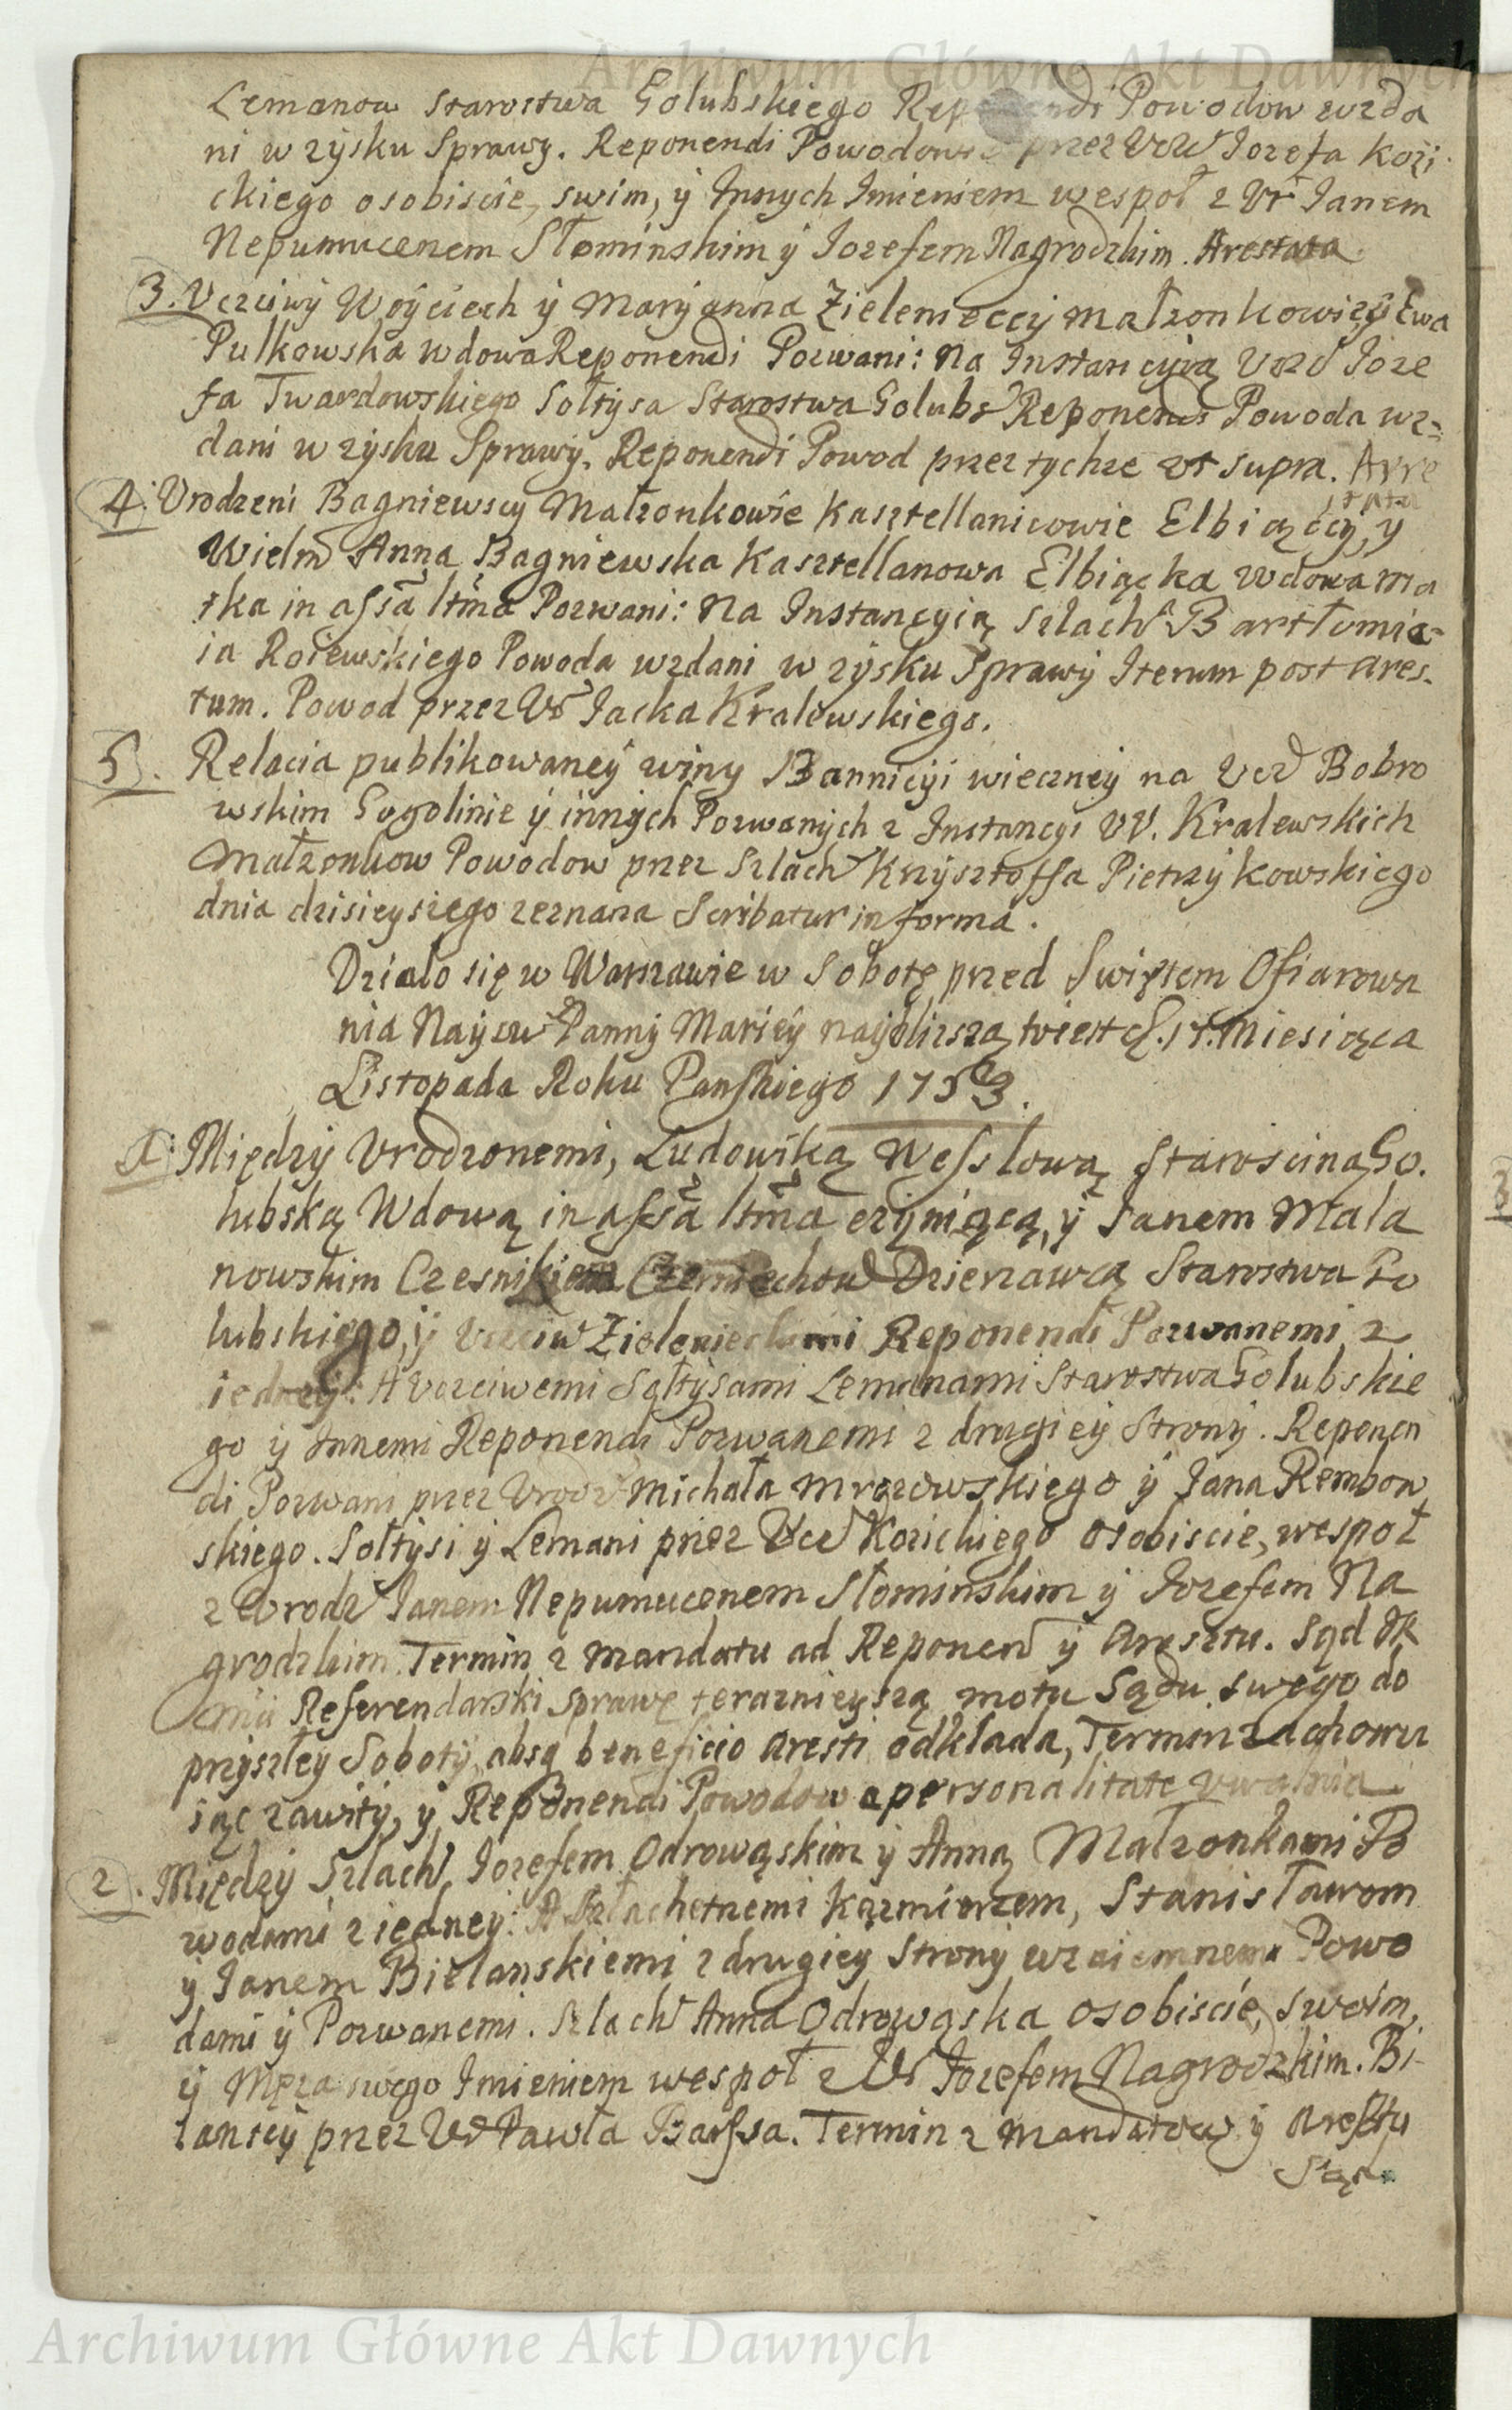 Archiwum Główne Akt Dawnych
Lemanow Starostwa Golubskiego Reponendi Powodow wzda
ni w zysku Sprawy. Reponendi Powodowie przez Vcz Iozefa Kozi
ckiego osobiscie, swim, y Innych Imieniem wespoł z Vr Ianem
Nepumucenem Słominskim y Iozefem Nagrodzkim. Arestata
3. Vcziwy Woyciech y Maryanna Zielenieccy Małzonkowie, y Ewa
Pulkowska wdowa Reponendi Pozwani: Na Instancyią Vczc Ioze
fa Twardowskiego Sołtysa Starostwa Golubs Reponendi Powoda wz=
dani w zysku Sprawy. Reponendi Powod przez tychze vt supra. Arre
stata
4. Vrodzeni Bagniewscy Małzonkowie Kasztellanicowie Elbiąccy, y
Wielm Anna Bagniewska Kasztellanowa Elbiącka wdowa ma
tka in assa ltma Pozwani: Na Instancyią Szlach Bartłomie=
ia Roiewskiego Powoda wzdani w zysku Sprawy Iterum post ares.
tum. Powod przez Vr Iacka Kralewskiego.
5. Relacia publikowaney winy Bannicyi wieczney na Vcz Bobro
wskim Gogolinie y innych Pozwanych z Instancyi VV. Kralewskich
Małzonkow Powodow przez Szlach Krzysztoffa Pietrzykowskiego
dnia dzisieyszego zeznana Scribatur in forma.
Działo się w Warszawie w Sobotę przed Swiętem Ofiarowa
nia Nayśw Panny Mariey naybliszą, to iest d. 17. Miesiąca
Listopada Roku Panskiego 1753.
1. Między Vrodzonemi, Ludowiką Wesslową Starościną Go.
lubską Wdową in assa ltma czyniącą, y Ianem Mala
nowskim Czesnikiem Czerniechow Dzierzawcą Starostwa Go
lubskiego, y Vcziw Zielenieckimi Reponendi Pozwanemi z
iedney: A Vczciwemi Sołtysami Lemanami Starostwa Golubskie
go y Innemi Reponendi Pozwanemi z drugiey Strony. Reponen
di Pozwani przez Vrodz Michała Mrozowskiego y Iana Rembow
skiego. Sołtysi y Lemani przez Vcz Kozickiego osobiscie, wespoł
z Vrodz Ianem Nepumucenem Słominskim y Iozefem Na
grodzkim. Termin z Mandatu ad Reponen y Aresztu. Sąd JK
Mci Referendarski Sprawę terazniejszą motu Sądu swego do
przyszłey Soboty, absq beneficio Aresti odkłada, Termin zachowu
iąc zawity, y Reponendi Powodow a personalitate vwalnia.
2. Między Szlach Iozefem Odrowąskim y Anną Małzonkami Po
wodami z iedney: A Szlachetnemi Kazmierzem, Stanisławom
y Ianem Bielanskiemi z drugiey Strony wzaiemnemi Powo
dami y Pozwanemi. Szlach Anna Odrowąska osobiscie, swoim,
y Męza swego Imieniem wespoł z Vr Iozefem Nagrodzkim. Bi-
lanscy przez Vr Pawła Barssa. Termin z Mandatow y Aresztu
Sąd
Archiwum Główne Akt Dawnych